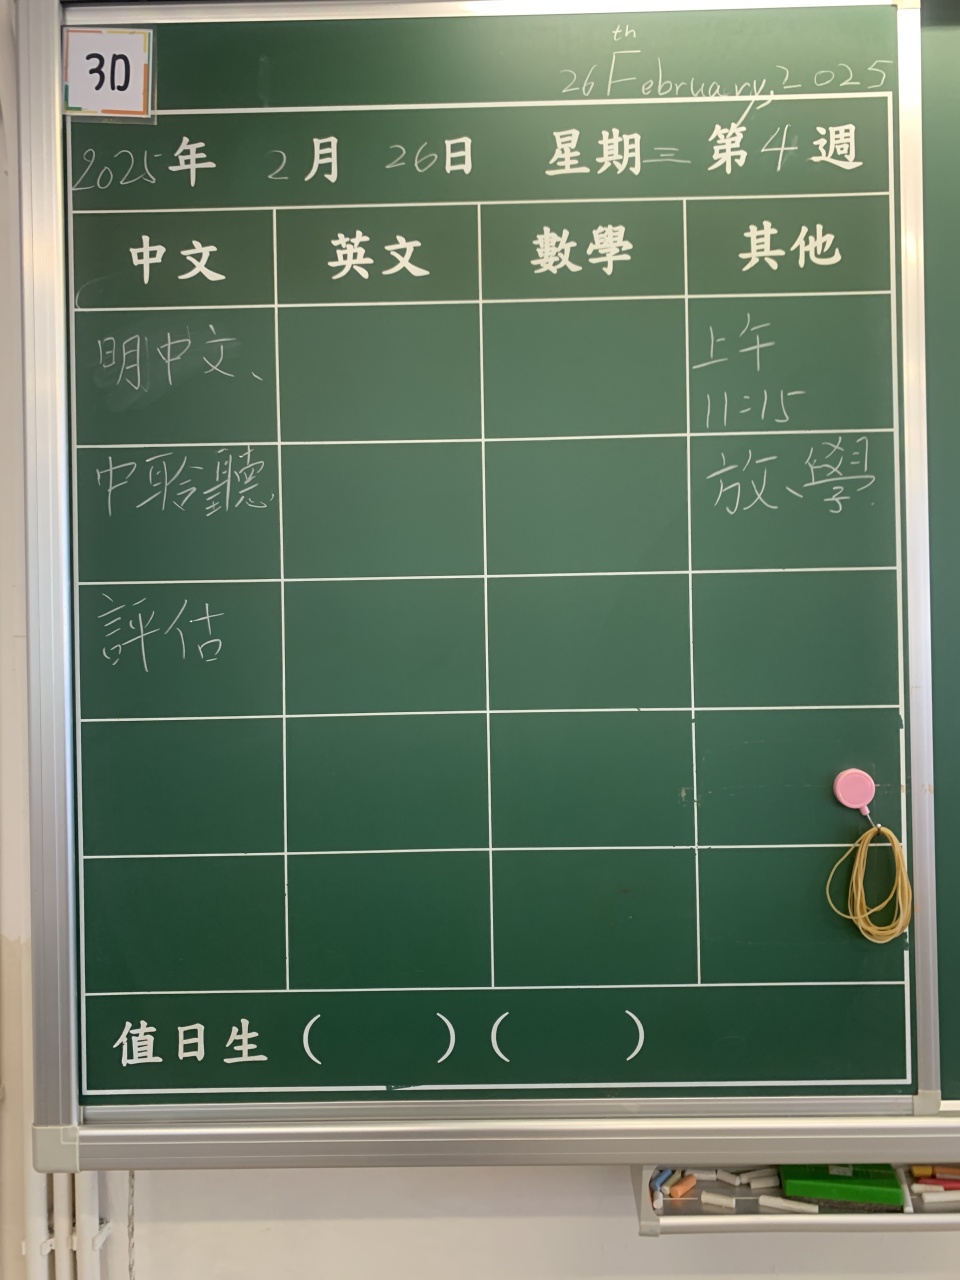 3D
26th February, 2025
2025年 2月 26日 星期三 第4週
中文 英文 數學 其他
明中文、
上午
11:15
中聆聽
放學
評估
值日生 ( ) ( )